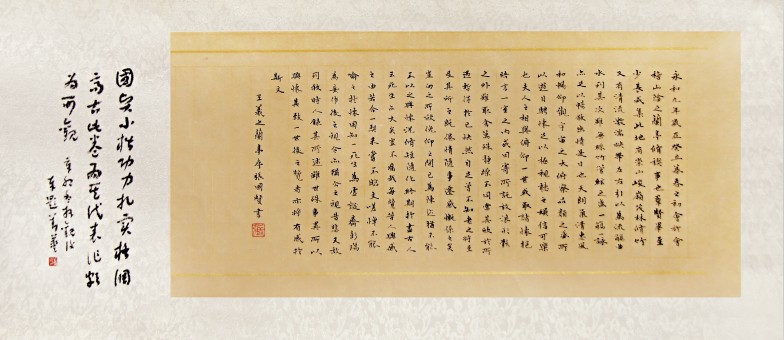 永和九年歲在癸丑暮春之初會於會
稽山陰之蘭亭脩禊事也羣賢畢至
少長咸集此地有崇山峻嶺茂林脩竹
又有清流激湍映帶左右引以為流觴曲
水列坐其次雖無絲竹管絃之盛一觴一詠
亦足以暢敘幽情是日也天朗氣清惠風
和暢仰觀宇宙之大俯察品類之盛所
以遊目騁懷足以極視聽之娛信可樂
也夫人之相與俯仰一世或取諸懷抱
晤言一室之內或因寄所託放浪形骸
之外雖取舍萬殊靜躁不同當其欣於所
遇暫得於己快然自足曾不知老之將至
及其所之既惓情隨事遷感慨係之矣
向之所欣俛仰之間已為陳迹猶不能
不以之興懷況脩短隨化終期於盡古人
云死生亦大矣豈不痛哉每覽昔人興感
之由若合一契未嘗不臨文嗟悼不能
喻之於懷固知一死生為虛誕齊彭殤
為妄作後之視今亦猶今之視昔悲夫故
列敘時人錄其所述雖世殊事異所以
興懷其致一也後之覽者亦將有感於
斯文
王羲之蘭亭序張國賢書
國賢小楷功力扎實格調
高古此卷為其代表作頗
為可觀